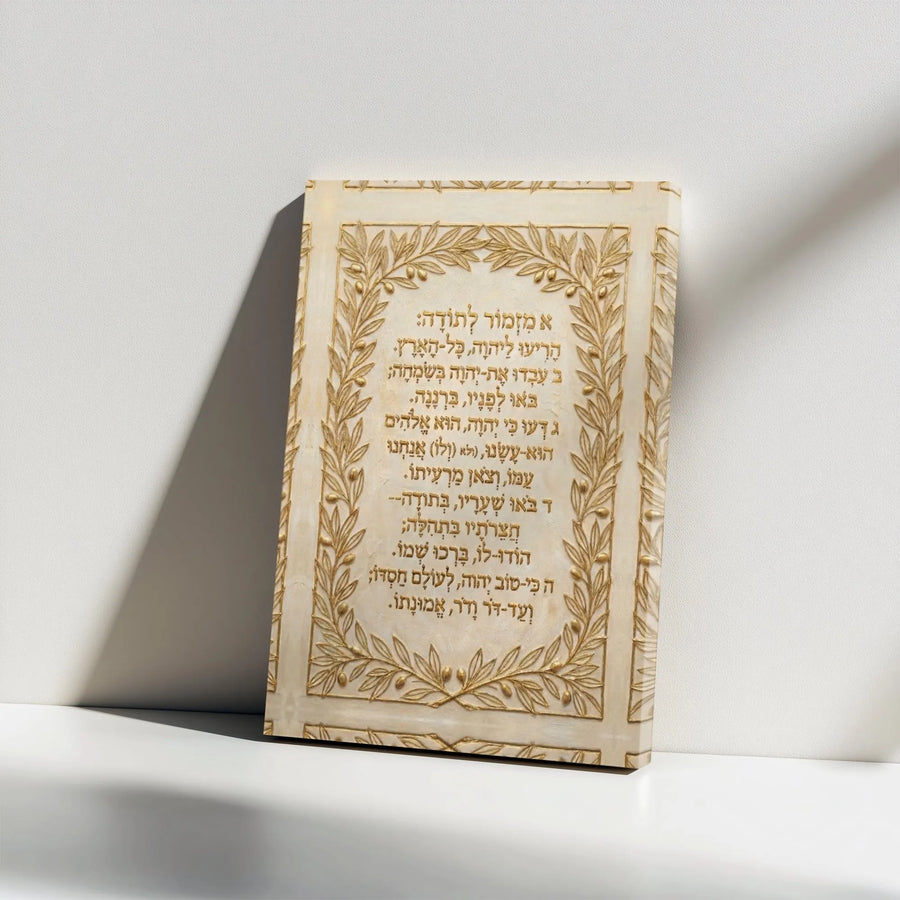 א מִזְמוֹר לְתוֹדָה:
הָרִיעוּ לַיהוָה, כָּל-הָאָרֶץ.
ב עִבְדוּ אֶת-יְהוָה בְּשִׂמְחָה;
בֹּאוּ לְפָנָיו, בִּרְנָנָה.
ג דְּעוּ כִּי יְהוָה, הוּא אֱלֹהִים
הוּא-עָשָׂנוּ, (ולא (וְלוֹ) אֲנַחְנוּ
עַמּוֹ, וְצֹאן מַרְעִיתוֹ.
ד בֹּאוּ שְׁעָרָיו, בְּתוֹדָה--
חֲצֵרֹתָיו בִּתְהִלָּה;
הוֹדוּ-לוֹ, בָּרְכוּ שְׁמוֹ.
ה כִּי-טוֹב יְהוָה, לְעוֹלָם חַסְדּוֹ;
וְעַד-דֹּר וָדֹר, אֱמוּנָתוֹ.